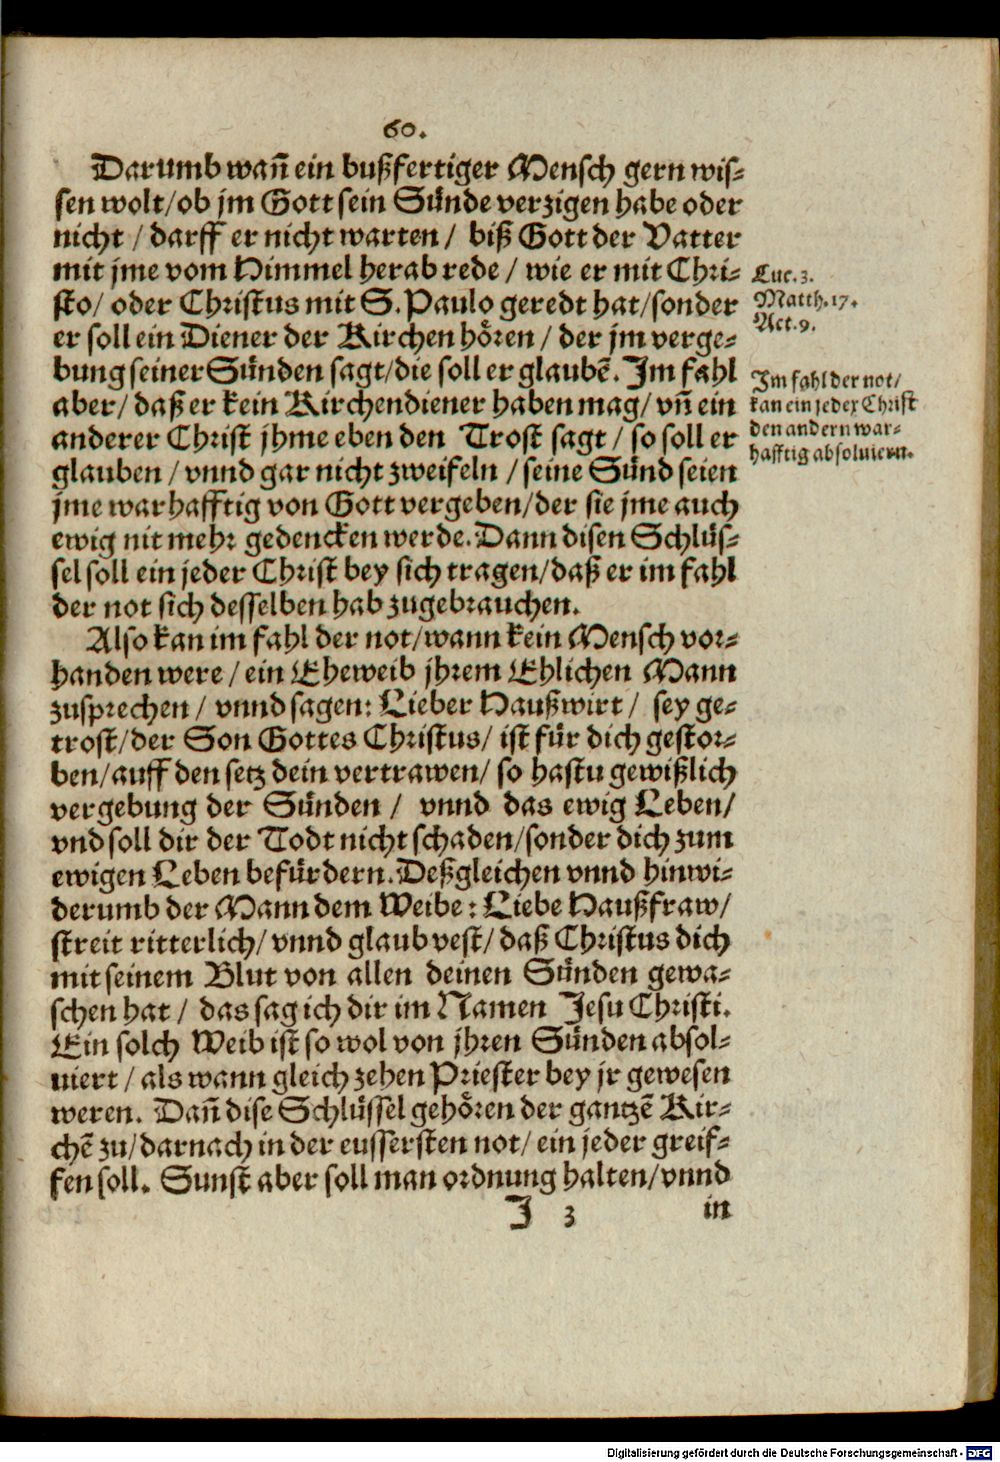 60.
Darumb wañ ein bußfertiger Mensch gern wis⸗
sen wolt/ob jm Gott sein Sünde verzigen habe oder
nicht / darff er nicht warten / biß Gott der Vatter
mit jme vom Himmel herab rede / wie er mit Chri⸗
sto/ oder Christus mit S. Paulo geredt hat/sonder
er soll ein Diener der Kirchen hören / der jm verge⸗
bung seiner Sünden sagt/die soll er glaubẽ. Im fahl
aber/ daß er kein Kirchendiener haben mag/ vñ ein
anderer Christ jhme eben den Trost sagt / so soll er
glauben / vnnd gar nicht zweifeln / seine Sünd seien
jme warhafftig von Gott vergeben/der sie jme auch
ewig nit mehr gedencken werde. Dann disen Schlüs⸗
sel soll ein jeder Christ bey sich tragen/daß er im fahl
der not sich desselben hab zugebrauchen.
Luc. 3.
Matth. 17.
Act. 9.
Im fahl der not/
kan ein jeder Christ
den andern war⸗
hafftig absoluiern.
Also kan im fahl der not/wann kein Mensch vor⸗
handen were / ein Eheweib jhrem Ehlichen Mann
zusprechen / vnnd sagen: Lieber Haußwirt / sey ge⸗
trost/der Son Gottes Christus/ ist für dich gestor⸗
ben/auff den setz dein vertrawen/ so hastu gewißlich
vergebung der Sünden / vnnd das ewig Leben/
vnd soll dir der Todt nicht schaden/sonder dich zum
ewigen Leben befürdern. Deßgleichen vnnd hinwi⸗
derumb der Mann dem Weibe: Liebe Haußfraw/
streit ritterlich/ vnnd glaub vest/ daß Christus dich
mit seinem Blut von allen deinen Sünden gewa⸗
schen hat / das sag ich dir im Namen Jesu Christi.
Ein solch Weib ist so wol von jhren Sünden absol⸗
uiert / als wann gleich zehen Priester bey jr gewesen
weren. Dañ dise Schlüssel gehören der gantzẽ Kir⸗
chẽ zu/darnach in der eussersten not/ ein jeder greif⸗
fen soll. Sunst aber soll man ordnung halten/vnnd
J 3 in
Digitalisierung gefördert durch die Deutsche Forschungsgemeinschaft - DFG